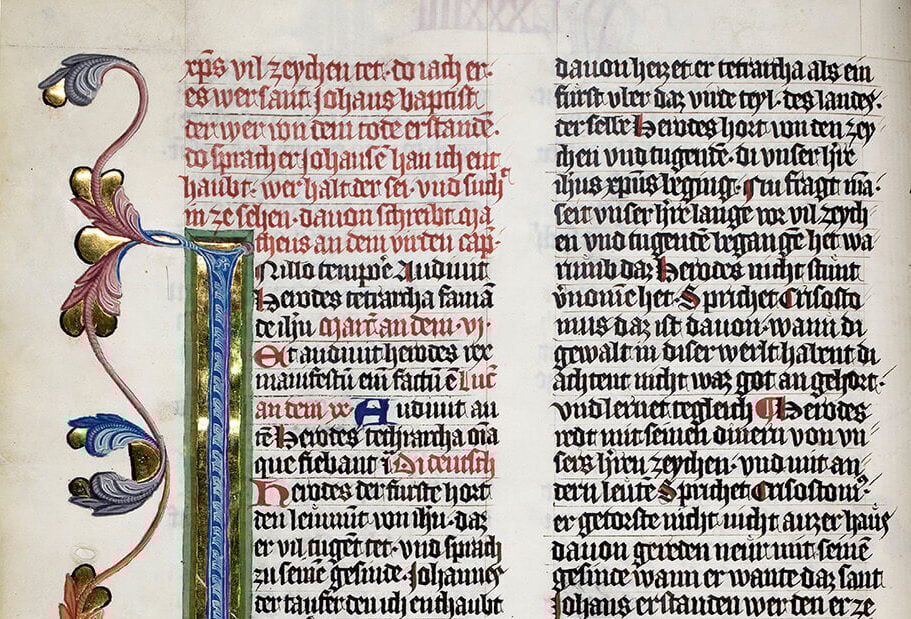 xp̃s vil zeychen tet · do iach er ·
es wer sant Johans baptist
der wer von dem tode erstandē ·
do sprach er Johansē han ich ent
haubt · wer halt der sei · vnd sucht
in ze sehen · dauon schreibt Ma
theus an dem virden cap̃ ·
In illo tempor̄e Audiuit
Herodes tetrarcha famā
de ih̃u Marc̃ an dem · vj ·
Et audiuit herodes rex
manifestū em̄ factū ē Luc̃
an dem ix Audiuit au
tē Herodes techrarcha om̄ia
que fiebant ī Di deutsch
Herodes der furste hort
den leumunt von ih̃u · daz
er vil tugēt tet · vnd sprach
zu seinē gesinde · Johannes
der taufer den ich enthaubt
dauon heizet er tetrarcha als ein
furst vber daz virde teyl · des landes ·
der selbe Herodes hort von den zey
chen vnd tugentē · di vnser h̃re
ih̃us xp̃us beging · Nu fragt mā ·
seit vnser h̃re lange vor vil zeych
en vnd tugentē begangē het wa
rumb daz Herodes nicht stunt
v̄nomē het · Sprichet Crisosto
mus daz ist dauon · wann di
gewalt in diser werlt habent di
achtent nicht waz got an gehort ·
vnd lernet tegleich Herodes
redt mit seinen dinern von vn
sers h̃ren zeychen · vnd mit an
dern leutē Sprichet Crisostomꝰ ·
er getorste nicht nicht auzer haus
dauon gereden neur mit seinē
gesinde wann er wante daz sant
Johans erstanden wer den er ze